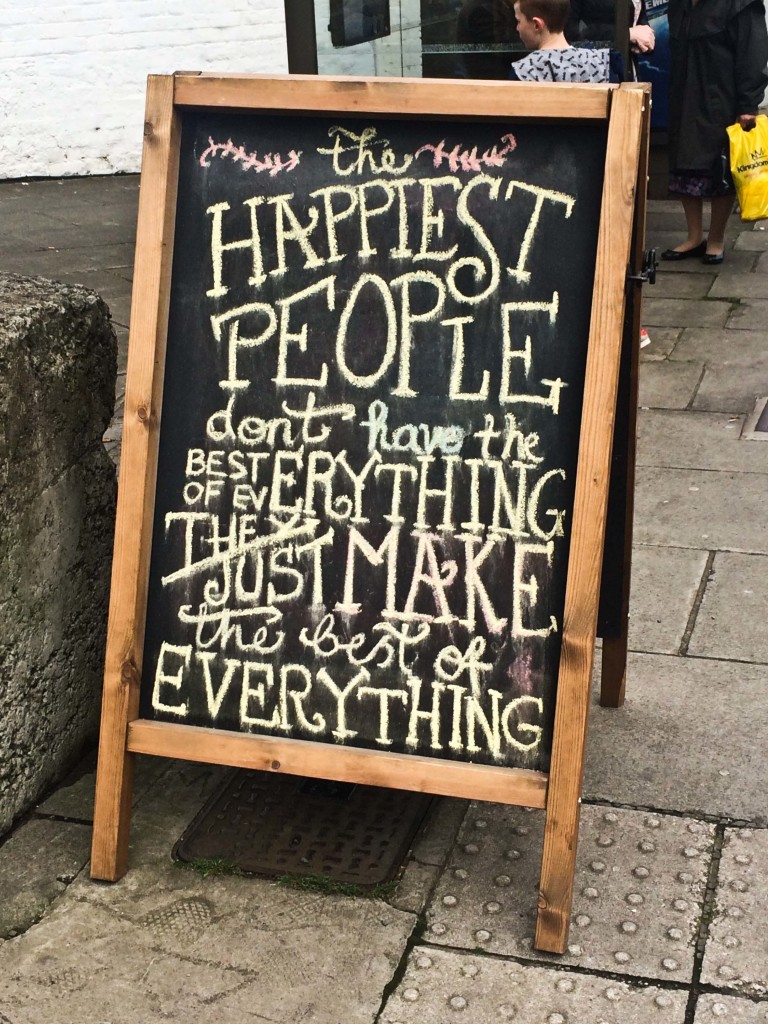 the
HAPPIEST
PEOPLE
dont have the
BEST
OF EVERYTHING
THEY
JUST MAKE
the best of
EVERYTHING
Kingdom